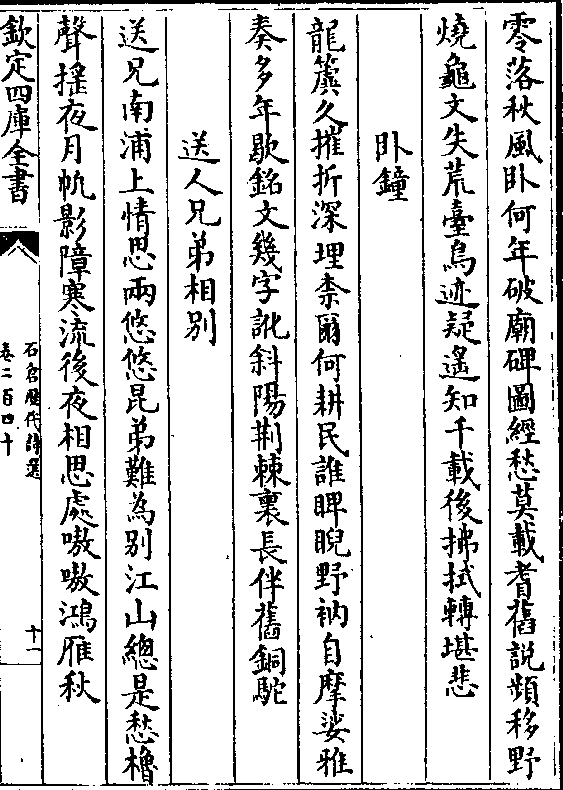 零落秋風卧何年破廟碑圖經愁莫載耆舊説頻移野
燒龜文失荒臺鳥迹疑遙知千載後拂拭轉堪悲
卧鐘
龍簴久摧折深埋柰爾何耕民誰睥睨野衲自摩娑雅
奏多年歇銘文幾字訛斜陽荆棘裏長伴舊銅駝
送人兄弟相别
送兄南浦上情思兩悠悠昆弟難為别江山總是愁櫓
聲揺夜月帆影障寒流後夜相思處嗷嗷鴻雁秋
欽定四庫全書
石倉歴代詩選
卷二百四十
十一